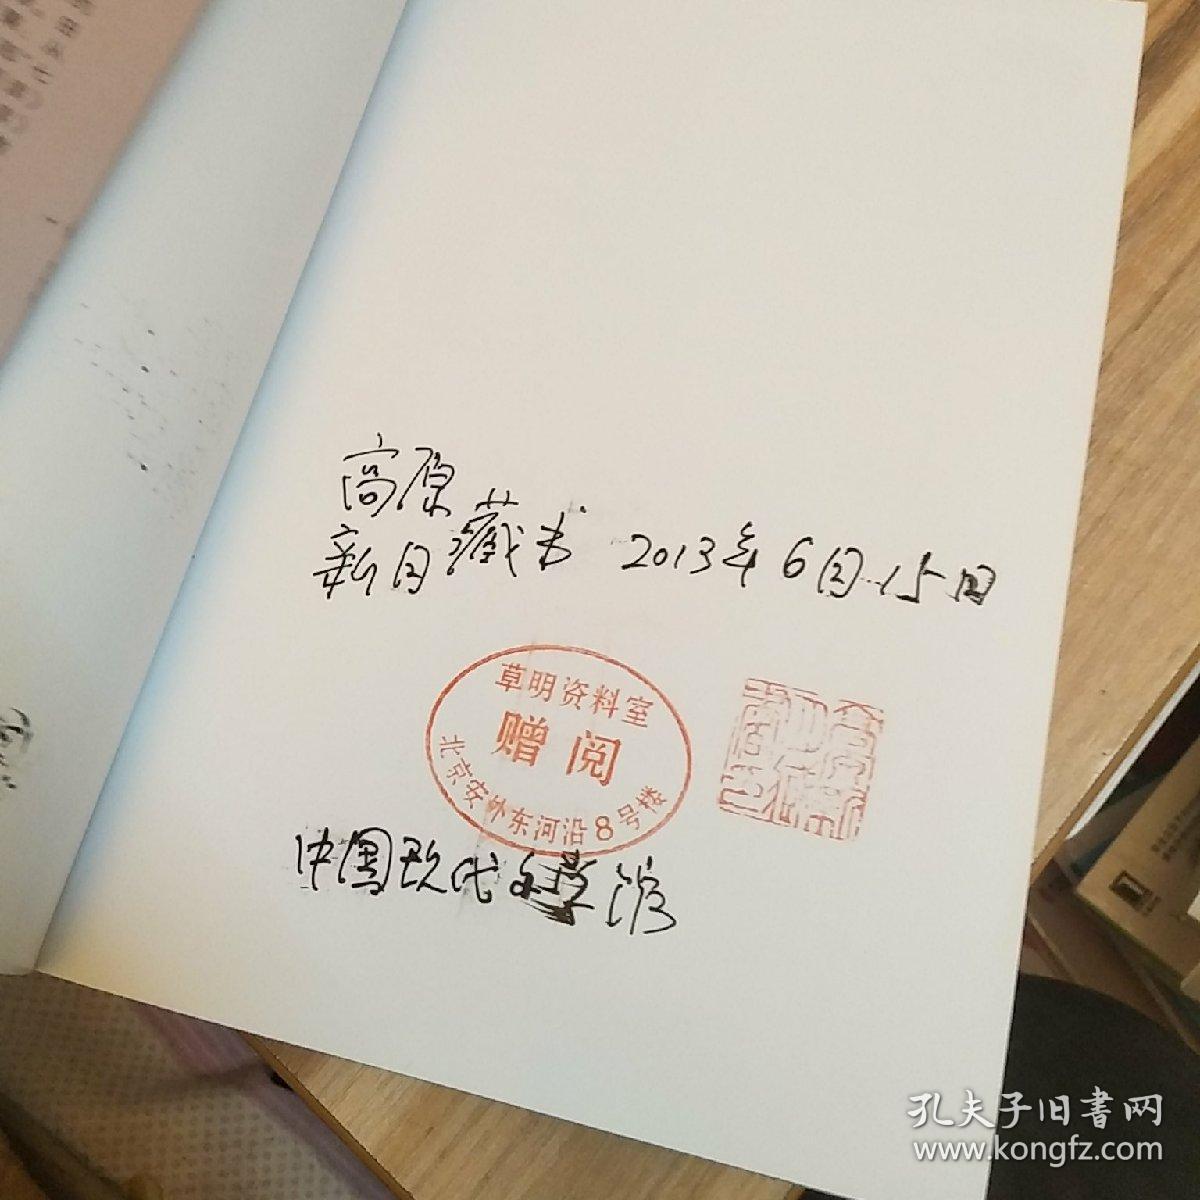 高原
新日 藏书 2013年6月15日
草明资料室
赠阅
北京安外东河沿8号楼
中国现代文学馆
孔夫子旧书网
www.kongfz.com